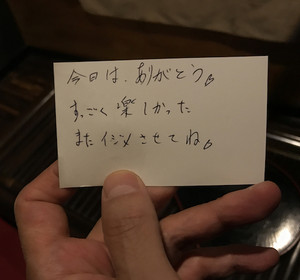 今日は、ありがとう♪
すっごく楽しかった
またイジメさせてね♪